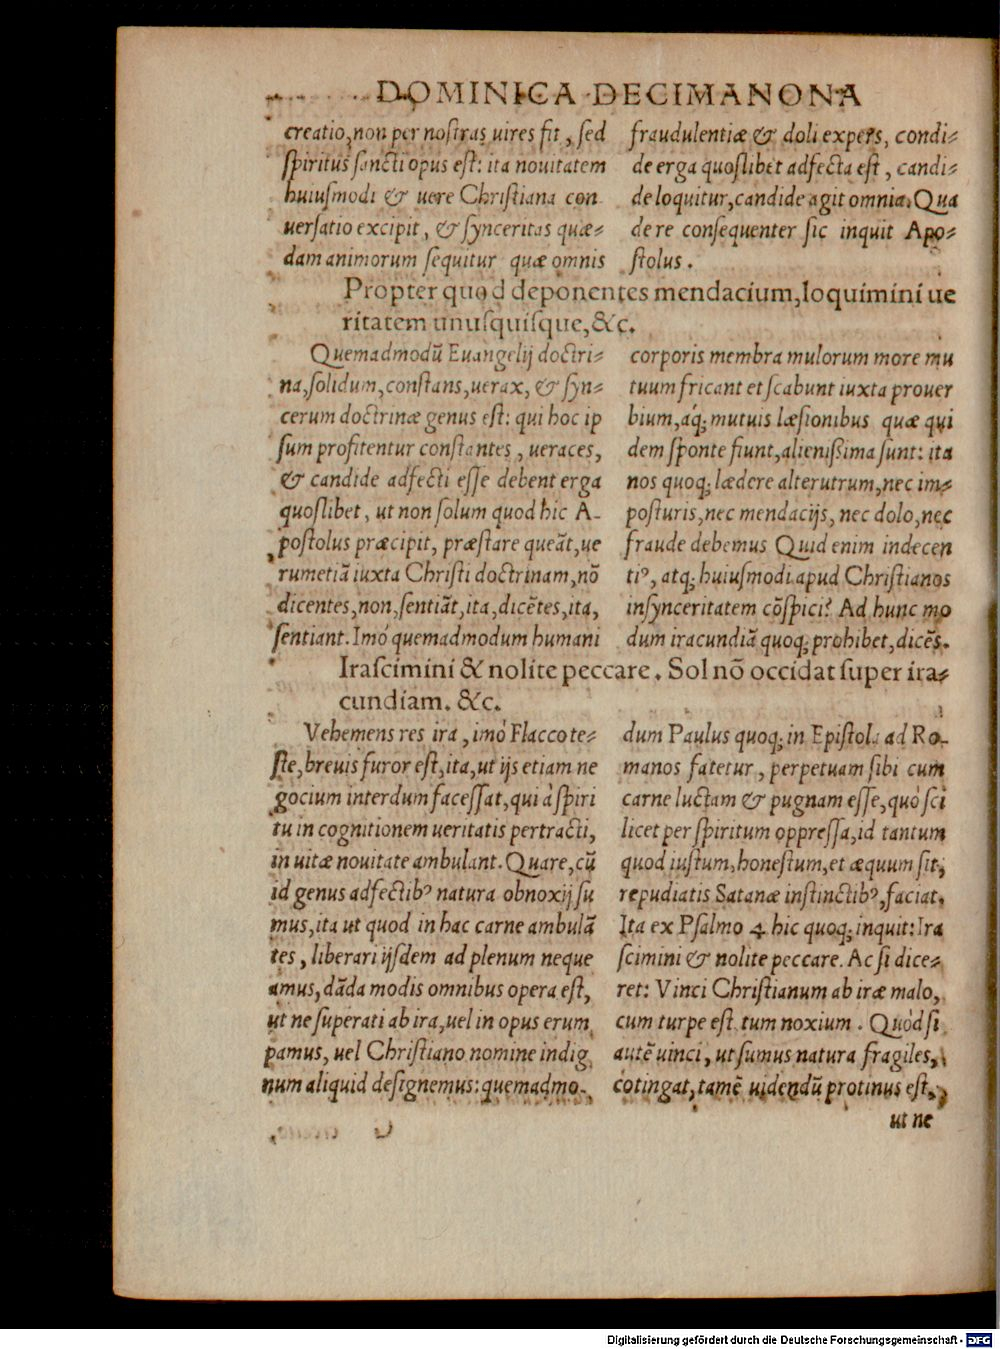 DOMINICA DECIMANONA
creatio, non per nostras uires fit, sed
spiritus sancti opus est: ita nouitatem
huiusmodi & uere Christiana con
uersatio excipit, & synceritas quæ-
dam animorum sequitur quæ omnis
fraudulentiæ & doli expers, condi-
de erga quoslibet adfecta est, candi-
de loquitur, candide agit omnia. Qua
de re consequenter sic inquit Apo-
stolus.
Propter quod deponentes mendacium, loquimini ue
ritatem unusquisque, &c.
Quemadmodū Euangelij doctri-
na, solidum, constans, uerax, & syn-
cerum doctrinæ genus est: qui hoc ip
sum profitentur constantes, ueraces,
& candide adfecti esse debent erga
quoslibet, ut non solum quod hic A-
postolus præcipit, præstare queāt, ue
rumetiā iuxta Christi doctrinam, nō
dicentes, non, sentiāt, ita, dicētes, ita,
sentiant. Imò quemadmodum humani
corporis membra mulorum more mu
tuum fricant et scabunt iuxta prouer
bium, áq; mutuis læsionibus quæ qui
dem sponte fiunt, alienißima sunt: ita
nos quoq; lædere alterutrum, nec im-
posturis, nec mendacijs, nec dolo, nec
fraude debemus Quid enim indecen
tiꝰ, atq; huiusmodi apud Christianos
insynceritatem cōspici? Ad hunc mo
dum iracundiā quoq; prohibet, dicēs.
Irascimini & nolite peccare. Sol nō occidat super ira-
cundiam. &c.
Vehemens res ira, imò Flacco te-
ste, breuis furor est, ita, ut ijs etiam ne
gocium interdum facessat, qui à spiri
tu in cognitionem ueritatis pertracti,
in uitæ nouitate ambulant. Quare, cū
id genus adfectibꝰ natura obnoxij su
mus, ita ut quod in hac carne ambulā
tes, liberari ijsdem ad plenum neque
amus, dāda modis omnibus opera est,
ut ne superati ab ira, uel in opus erum
pamus, uel Christiano nomine indig
num aliquid designemus: quemadmo-
dum Paulus quoq; in Epistola ad Ro-
manos fatetur, perpetuam sibi cum
carne luctam & pugnam esse, quò sci
licet per spiritum oppressa, id tantum
quod iustum, honestum, et æquum sit,
repudiatis Satanæ instinctibꝰ, faciat.
Ita ex Psalmo 4. hic quoq; inquit: Ira
scimini & nolite peccare. Ac si dice-
ret: Vinci Christianum ab iræ malo,
cum turpe est tum noxium. Quòd si
autē uinci, ut sumus natura fragiles,
cōtingat, tamē uidendū protinus est,
ut ne
Digitalisierung gefördert durch die Deutsche Forschungsgemeinschaft - DFG